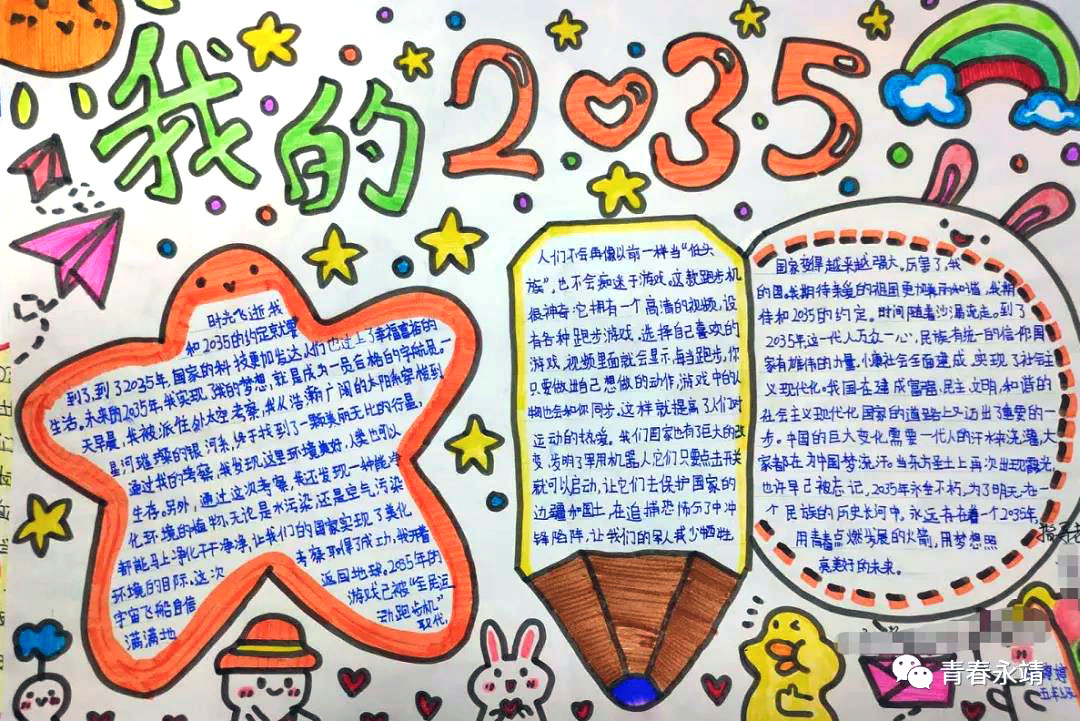 我的2035
时光飞逝,我
和2035的约定就要
到了,到了2025年,国家的科技更加发达,人们也过上了幸福富裕的
生活。未来的2035年,我实现了我的梦想,就是成为一员合格的宇航员。一
天早晨,我被派往外太空考察,我从浩瀚广阔的太阳系穿梭到
星河璀璨的银河系,终于找到了一颗美丽无比的行星,
通过我的考察,我发现这里环境美好,人类也可以
生存。另外,通过这次考察,我还发现一种能净
化环境的植物,无论是水污染,还是空气污染
都能马上净化干干净净,让我们的国家实现了美化
环境的目标。这次考察取得了成功,我开着
宇宙飞船自信返回地球。2035年的
满满地游戏已被“全民运
动跑步机”
取代,
人们不会再像以前一样当“低头
族”,也不会痴迷于游戏。这款跑步机
很神奇:它拥有一个高清的视频,设
有各种跑步游戏。选择自己喜欢的
游戏,视频里面就会显示,每当跑步,你
只要做出自己想做的动作,游戏中的人
物也会和你同步,这样就提高了人们对
运动的热爱。我们国家也有了巨大的改
变,发明了军用机器人,它们只要点击开关
就可以启动,让它们去保护国家的
边疆和国土,在追捕恐怖份子中冲
锋陷阵,让我们的军人减少牺牲
国家变得越来越强大。厉害了,我
的国。我期待亲爱的祖国更加美丽和谐,我期
待和2035的约定。时间随着沙漏流走。到了
2035年这一代人万众一心,民族有统一的信仰,国
家有雄伟的力量,小康社会全面建成,实现了社会主
义现代化。我国在建成富强、民主、文明、和谐的
社会主义现代化国家的道路上又迈出了重要的一
步。中国的巨大变化需要一代人的汗水来浇灌,大
家都在为中国梦流汗。当东方圣土上再次出现霞光,
也许早已被忘记,2035年永垂不朽。为了明天,在一
个民族的历史长河中,永远存在着一个2035年,
用青春点燃发展的火箭,用梦想照
亮美好的未来。
青春永靖